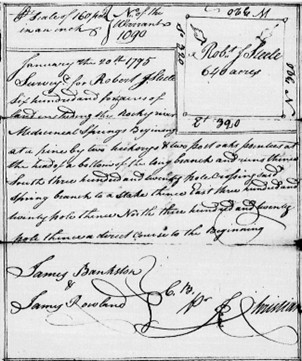 Pr Scale of 160 po
in an inch
No. of the
Warrant
1090
Robt. J Steele
640 acres
January the 20th 1795
Surveyd. for Robert J Steele
Six hundred and fourty acres of
land Including the Rocky river
Medicenal Springs Begining
at a pine by two hickorys & two post oaks pointers at
the head of a bottom of the long branch and runs thence
South three hundred and twenty pole Crossing sd.
Spring branch to a stake thence East three hundred and
twenty pole thence North three hundred and twenty
pole thence a direct Course to the Beginning
James Bankston
&
James Rowland
C. B.
Pr
Christian